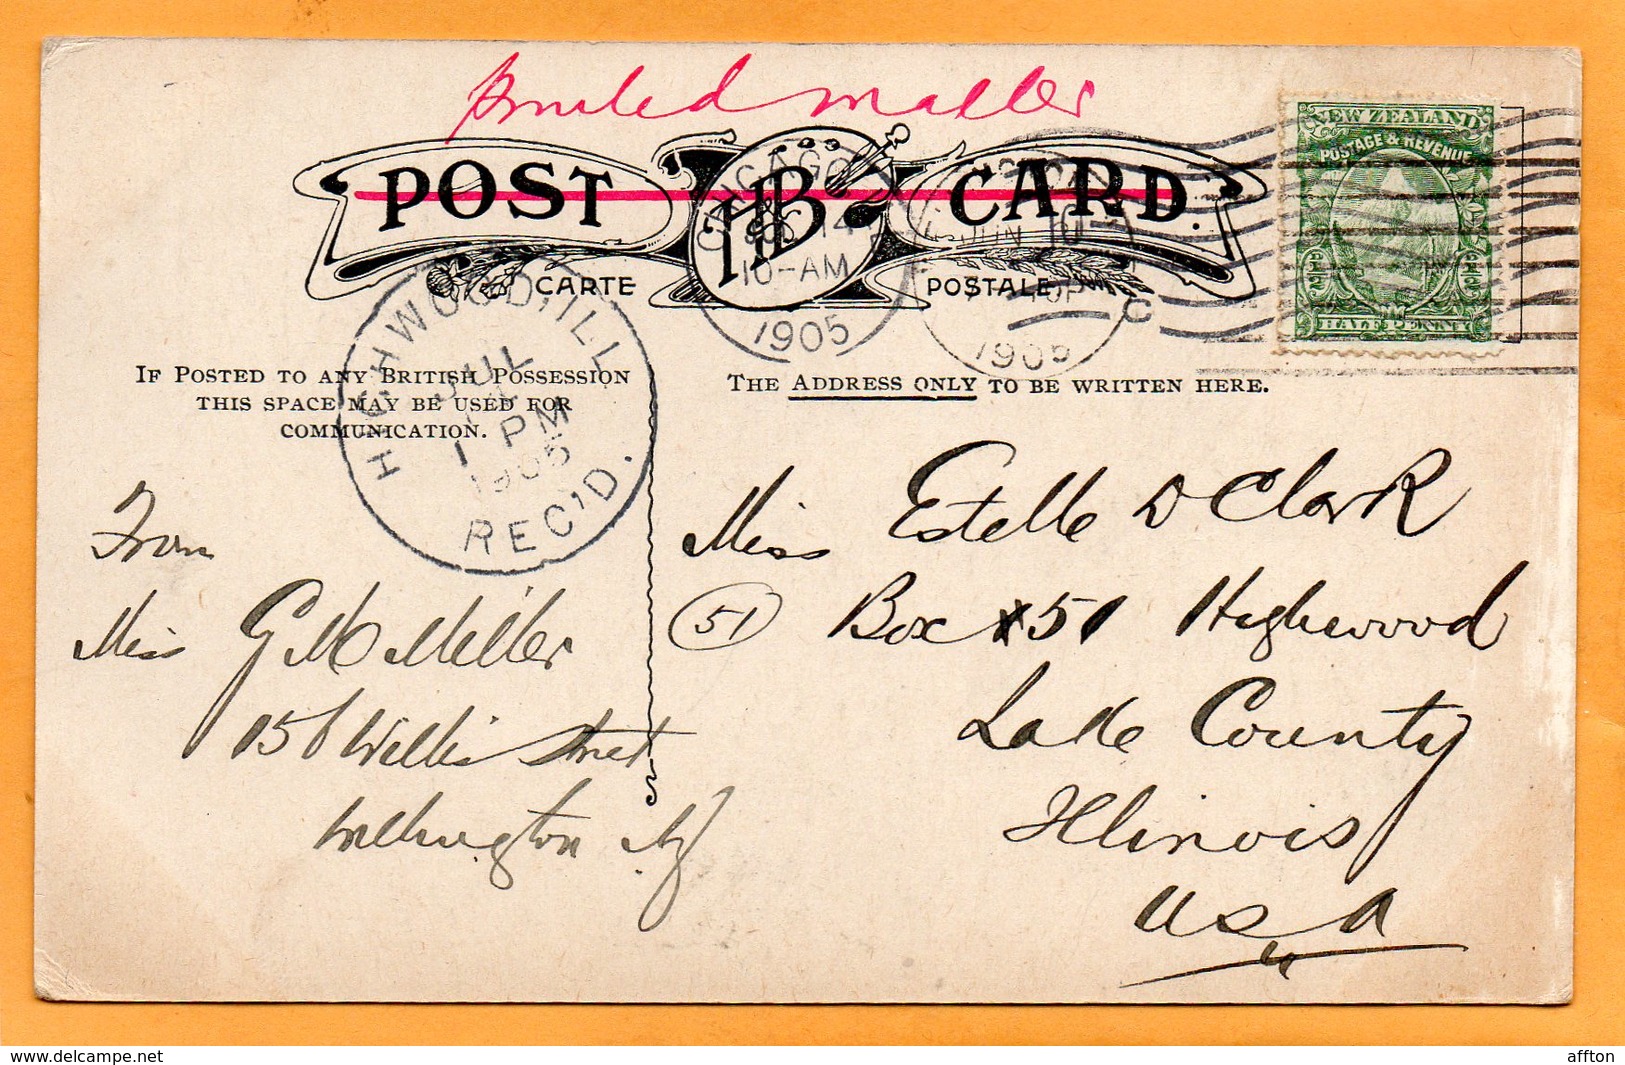 Printed matter
POST CARD.
HB
CARTE POSTALE
NEW ZEALAND
POSTAGE & REVENUE
HALF PENNY
CHICAGO
14
10-AM
1905
JUN 10
1905
HIGHWOOD, ILL
JUL
1 PM
1905
REC'D.
IF POSTED TO ANY BRITISH POSSESSION
THIS SPACE MAY BE USED FOR
COMMUNICATION.
THE ADDRESS ONLY TO BE WRITTEN HERE.
From
Miss G M Miller
156 Willis Street
Wellington NZ
Miss Estelle D Clark
51 Box 51 Highwood
Lake County
Illinois
U S A
www.delcampe.net
affton